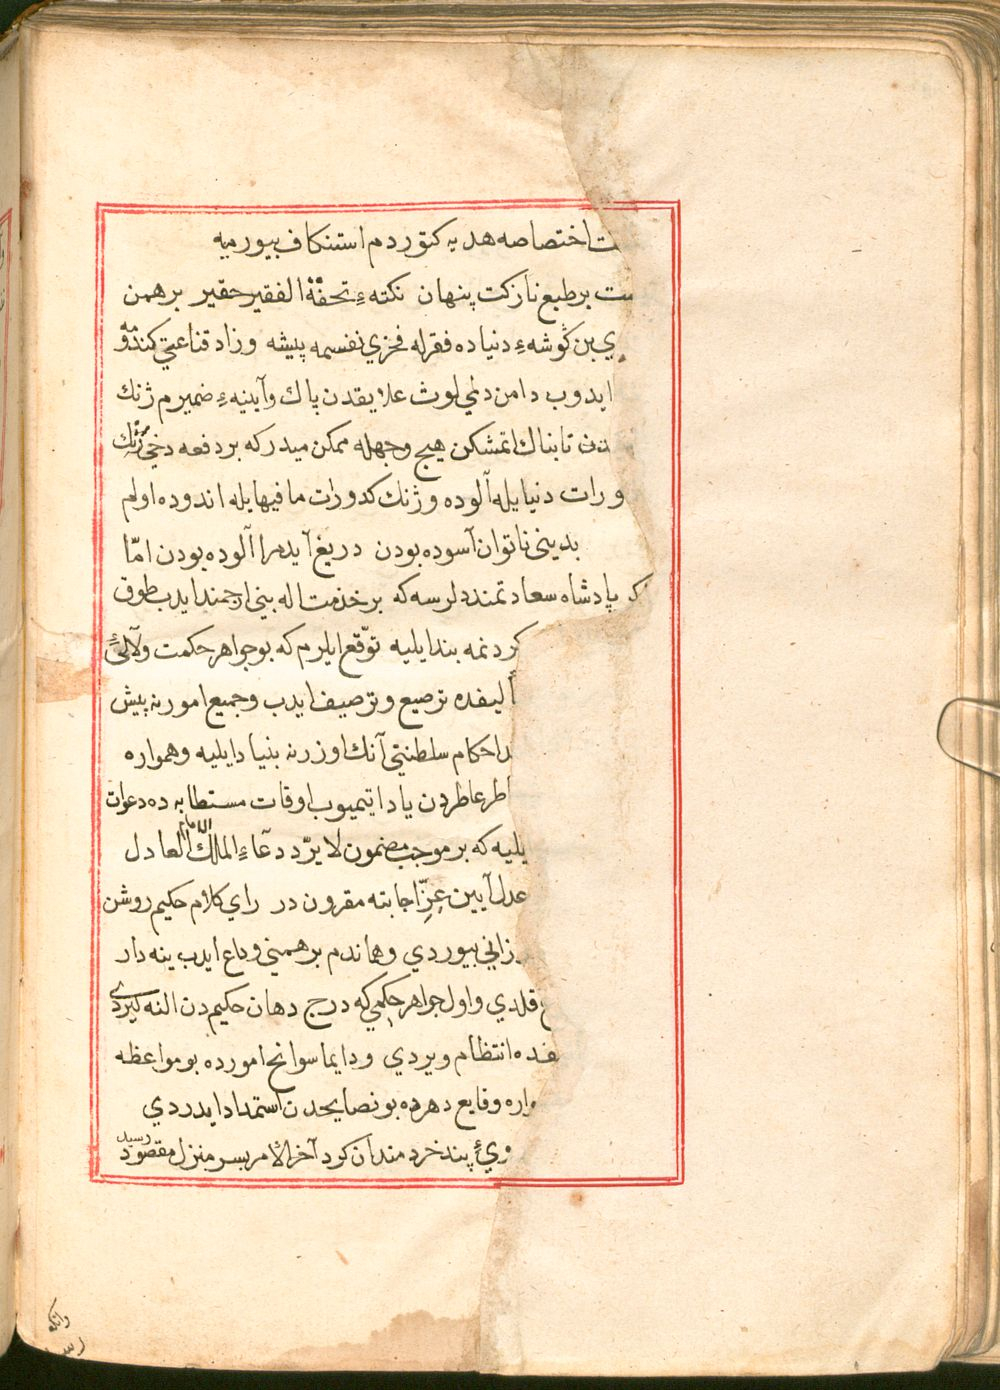 ت اختصاصه هديه كتوردم استنكاف بيورميه
ست بر طبع نازكت پنهان نكتهءِ تحفة الفقير حقير برهمن
ي بن كوشهءِ دنياده فقرله فخري نفسمه پيشه و زاد قناعتي كندومه
ايدوب دامن دلمي لوث علايقدن پاك و آيينهءِ ضميرم ژنك
دن تابناك اتمشكن هيچ وجهله ممكن ميدركه بر دفعه دخي ژنك
ورات دنيايله آلوده و ژنك كدورات مافيهايله اندوده اولم
بديني ناتوان آسوده بودن دريغ آيد مرا آلوده بودن امّا
كه پادشاه سعادتمند دلرسه كه بر خذمت اله بني ارجمند ايدب طوق
كردنمه بند ايليه توّقع ايلرم كه بو جواهر حكمت و لآلئ
أليفده ترصيع و ترصيف ايدب و جميع امورنه پيش
احكام سلطنتي آنك اوزرنه بنياد ايليه و همواره
اطر عاطردن ياد اتيميوب اوقات مستطابه ده دعوات
يليه كه بر موجب مضمون لا يرّد دعاء الملك الامام العادل
عدل آيين عزّ اجابته مقرون در راي كلام حكيم روشن
رزاني بيوردي و هماندم برهمني وداع ايدب ينه دار
قلدي و اول جواهر حكمي كه درج دهان حكيم دن النه كيردي
فده انتظام ويردي و دايما سوانح امورده بو مواعظه
واره وقايع دهرده بو نصايحدن استمداد ايدردي
وئ پند خردمندان كرد آخر الامر بسر منزل مقصود رسيد
وانكه